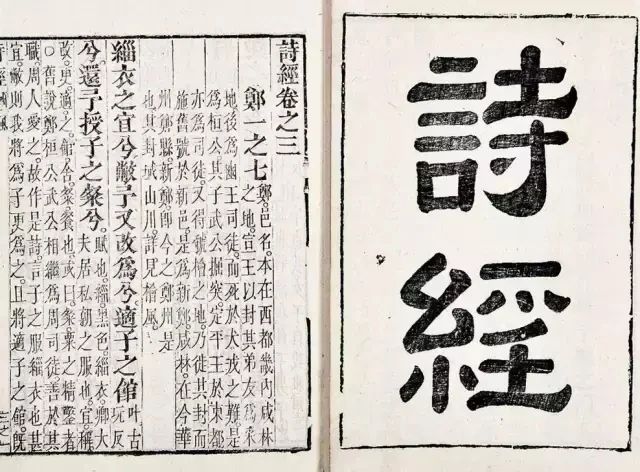 詩
經
詩經卷之三
鄭一之七
鄭。邑名。本在西都畿內咸林
之地。宣王以封其弟友爲采
地後爲幽王司徒。而死於犬戎之難。是
爲桓公。其子武公掘突。定平王於東都
亦爲司徒。又得虢檜之地。乃徙其封而
施舊號於新邑。是爲新鄭。咸林。在今華
州鄭縣。新鄭。卽今之鄭州。是
也。其封域山川。詳見檜風。
緇衣之宜兮。敝予又改爲兮。適子之館
叶古
玩反
兮。還予授子之粲兮。
賦也。緇。黑色。緇衣。卿大
夫居私朝之服也。宜。稱
改。更。適。之。館。舍。粲。餐也。或曰。粲。粟之精鑿者
○舊說鄭桓公武公。相繼爲周司徒。善於其
職。周人愛之。故作是詩。言子之服緇衣也甚
宜。敝則我將爲子更爲之。且將適子之館。旣